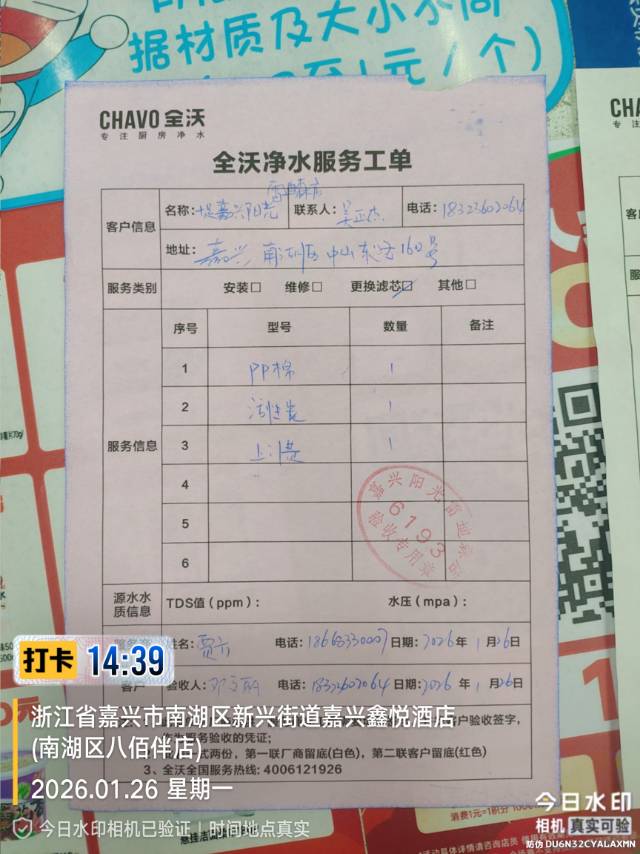 据材质及大小不同
元/个)
CHAVO 全沃
专注厨房净水
全沃净水服务工单
客户信息
名称: 嘉兴阳光
联系人: 吴正杰
电话: 18323602064
地址: 嘉兴 南湖区 中山东路160号
服务类别 安装□ 维修□ 更换滤芯☑ 其他□
服务信息
序号 型号 数量 备注
1 PP棉 1
2 1
3 1
4
5
6
嘉兴阳光
6193
验收专用章
源水水质信息 TDS值(ppm): 水压(mpa):
姓名: 电话: 日期: 2026年1月26日
客户 验收人: 电话: 18323602064 日期: 2026年1月26日
客户验收签字,
作为服务验收的凭证;
式两份, 第一联厂商留底(白色), 第二联客户留底(红色)
3、全沃全国服务热线: 4006121926
打卡 14:39
浙江省嘉兴市南湖区新兴街道嘉兴鑫悦酒店
(南湖区八佰伴店)
2026.01.26 星期一
今日水印相机已验证 | 时间地点真实
今日水印
相机 真实可验
防伪 DU6N32CYALAXMN
CHA